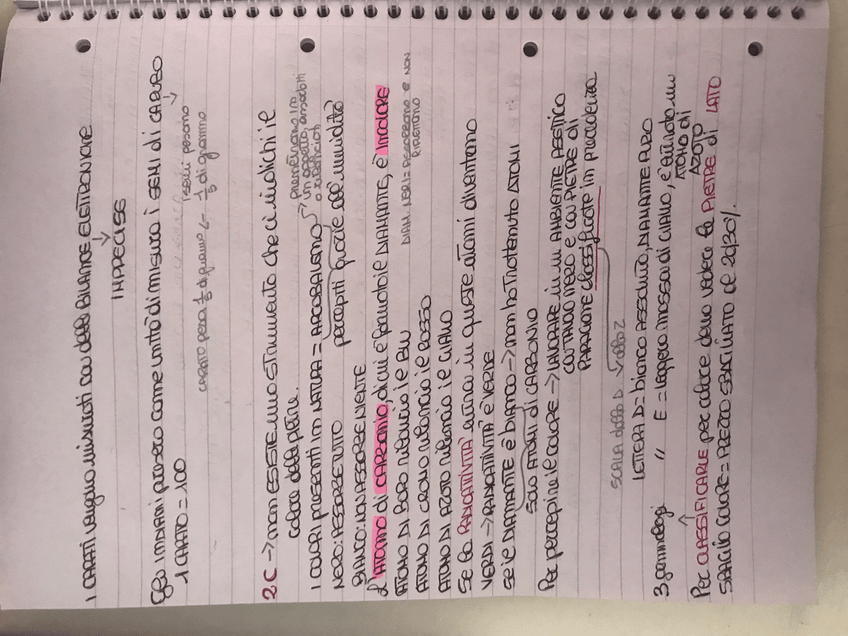 I CARATI vengono misurati con delle BILANCE ELETTRONICHE
↓
IMPRECISE
GLI INDIANI presero come unità di misura i SEMI di CARRUBO
1 CARATO = 100
↓
i semi pesano
CARATO pesa 1/5 di grammo ← 1/5 di grammo
2 C → non ESISTE uno strumento che ci indichi il
colore delle pietre.
I COLORI presenti in NATURA = ARCOBALENO → prendiamo in
un oggetto, assorbiti
o
percepiti grazie all'umidità
NERO: ASSORBE TUTTO
BIANCO: NON ASSORBE NIENTE
L'ATOMO di CARBONIO, di cui è formato il DIAMANTE, è INCOLORE
DIAM. NERI = ASSORBONO E NON
RIFLETTONO
ATOMO DI BORO rilascia il BLU
ATOMO DI CROMO rilascia il ROSSO
ATOMO DI AZOTO rilascia il GIALLO
Se la RADIOATTIVITÀ entra in queste atomi diventano
VERDI → RADIOATTIVITÀ È VERDE
se il DIAMANTE È BIANCO → non ha trattenuto ATOMI
SOLO ATOMI di CARBONIO
Per percepire il COLORE → LAVORARE in un AMBIENTE ASETTICO
CON PIETRE DI
PARAGONE classificate in precedenza
SCALA dalla D alla Z
LETTERA D = BIANCO ASSOLUTO, DIAMANTE PURO
3 gemmologi " E = leggero messaggio di GIALLO, è entrato un
ATOMO di
AZOTO
Per CLASSIFICARLE per colore devo vedere la PIETRE di LATO
SBAGLIO COLORE = PREZZO SBAGLIATO DEL 20/30%.